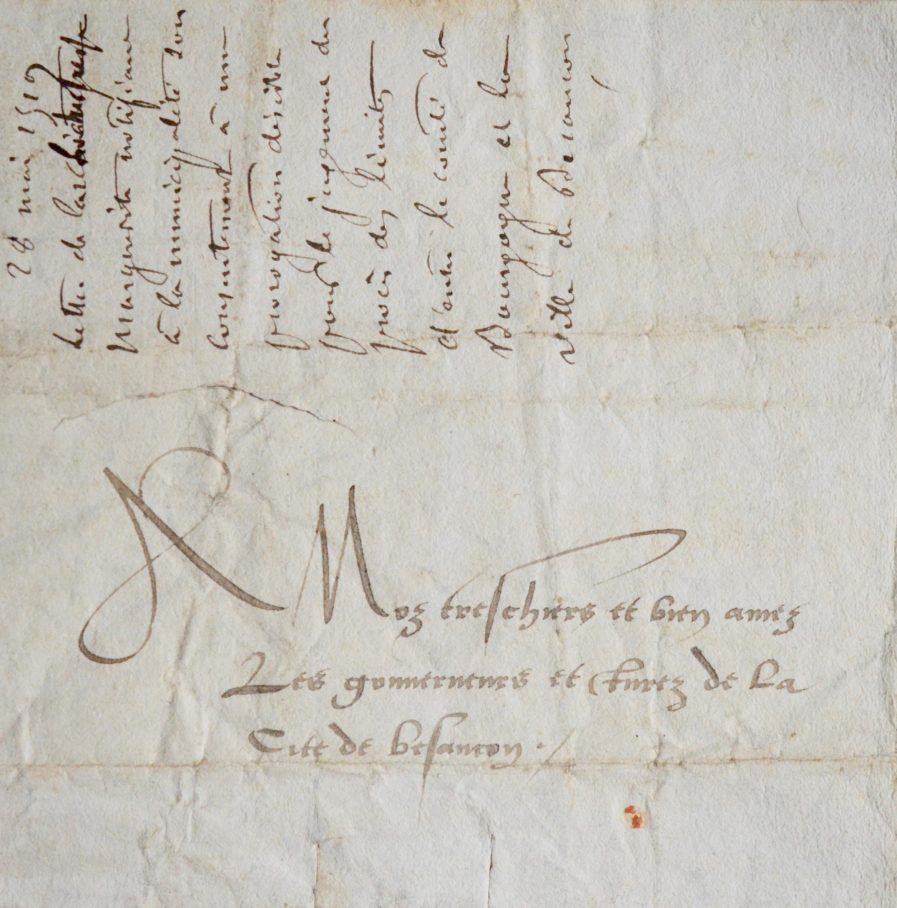 28 mai 1519
Lettre de l'archiduchesse
Marguerite notifiant
à la municipalité son
consentement à une
prorogation décidée
pour le jugement du
procès des limites
d'entre le comté de
Bourgogne et la
ville de Besancon
A Noz treschiers et bien amez
Les gouuerneurs et Jurez de La
Cite de besancon